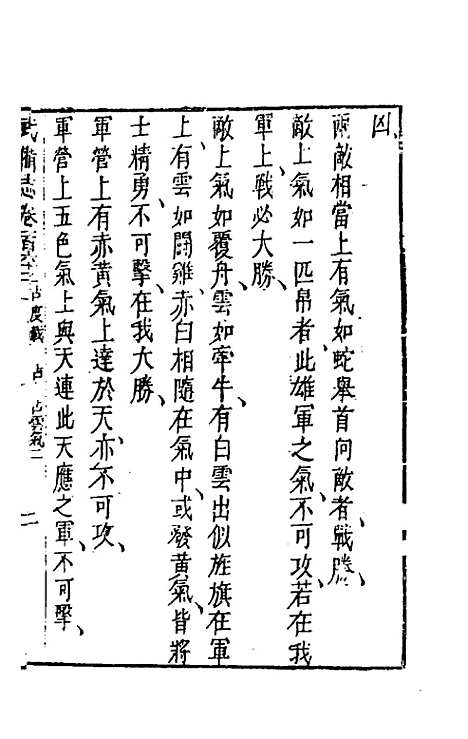 凶、
兩敵相當上有氣如蛇舉首向敵者、戰勝、
敵上氣如一匹帛者、此雄軍之氣、不可攻、若在我
軍上、戰必大勝、
敵上氣如覆舟、雲如牽牛、有白雲出似旌旗在軍
上、有雲如鬪雞、赤白相隨在氣中、或發黃氣、皆將
士精勇、不可擊、在我大勝、
軍營上有赤黃氣上達於天、亦不可攻、
軍營上五色氣上與天連此天應之軍、不可擊、
武備志卷 占度載 占 占雲氣二 二